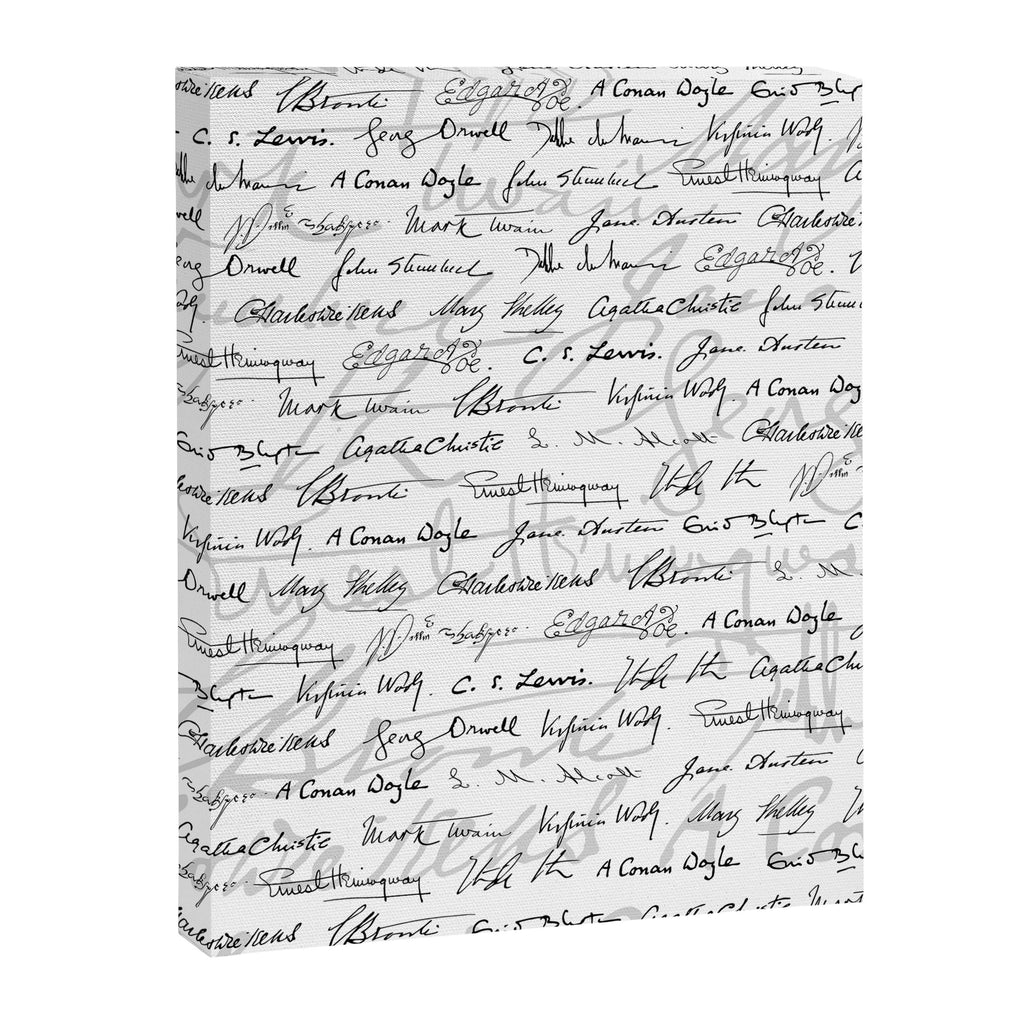 C Brontë Edgar A Poe. A Conan Doyle Enid Blyt
C. S. Lewis. Georg Orwell Daphne du Maurier Virginia Woolf.
du Maurier A Conan Doyle John Steinbeck Ernest Hemingway
Shakspere Mark Twain Jane Austen Charles Dickens
Orwell John Steinbeck Daphne du Maurier Edgar A Poe.
Charles Dickens Mary Shelley Agatha Christie John Steinbeck
Ernest Hemingway Edgar A Poe. C. S. Lewis. Jane Austen
Shakspere Mark Twain C Brontë Virginia Woolf. A Conan Doy
Enid Blyton Agatha Christie L. M. Alcott Charles Dicke
C Brontë Ernest Hemingway
Virginia Woolf. A Conan Doyle Jane Austen Enid Blyton C
Orwell Mary Shelley Charles Dickens C Brontë L. M.
Ernest Hemingway Shakspere Edgar A Poe. A Conan Doyle
Blyton Virginia Woolf. C. S. Lewis. Agatha Ch
Charles Dickens Georg Orwell Virginia Woolf. Ernest Hemingway
Shakspere A Conan Doyle L. M. Alcott Jane Austen
Agatha Christie Mark Twain Virginia Woolf. Mary Shelley
Shakspere Ernest Hemingway A Conan Doyle Enid Bl
Charles Dickens C Brontë Enid Blyton Agatha Christie